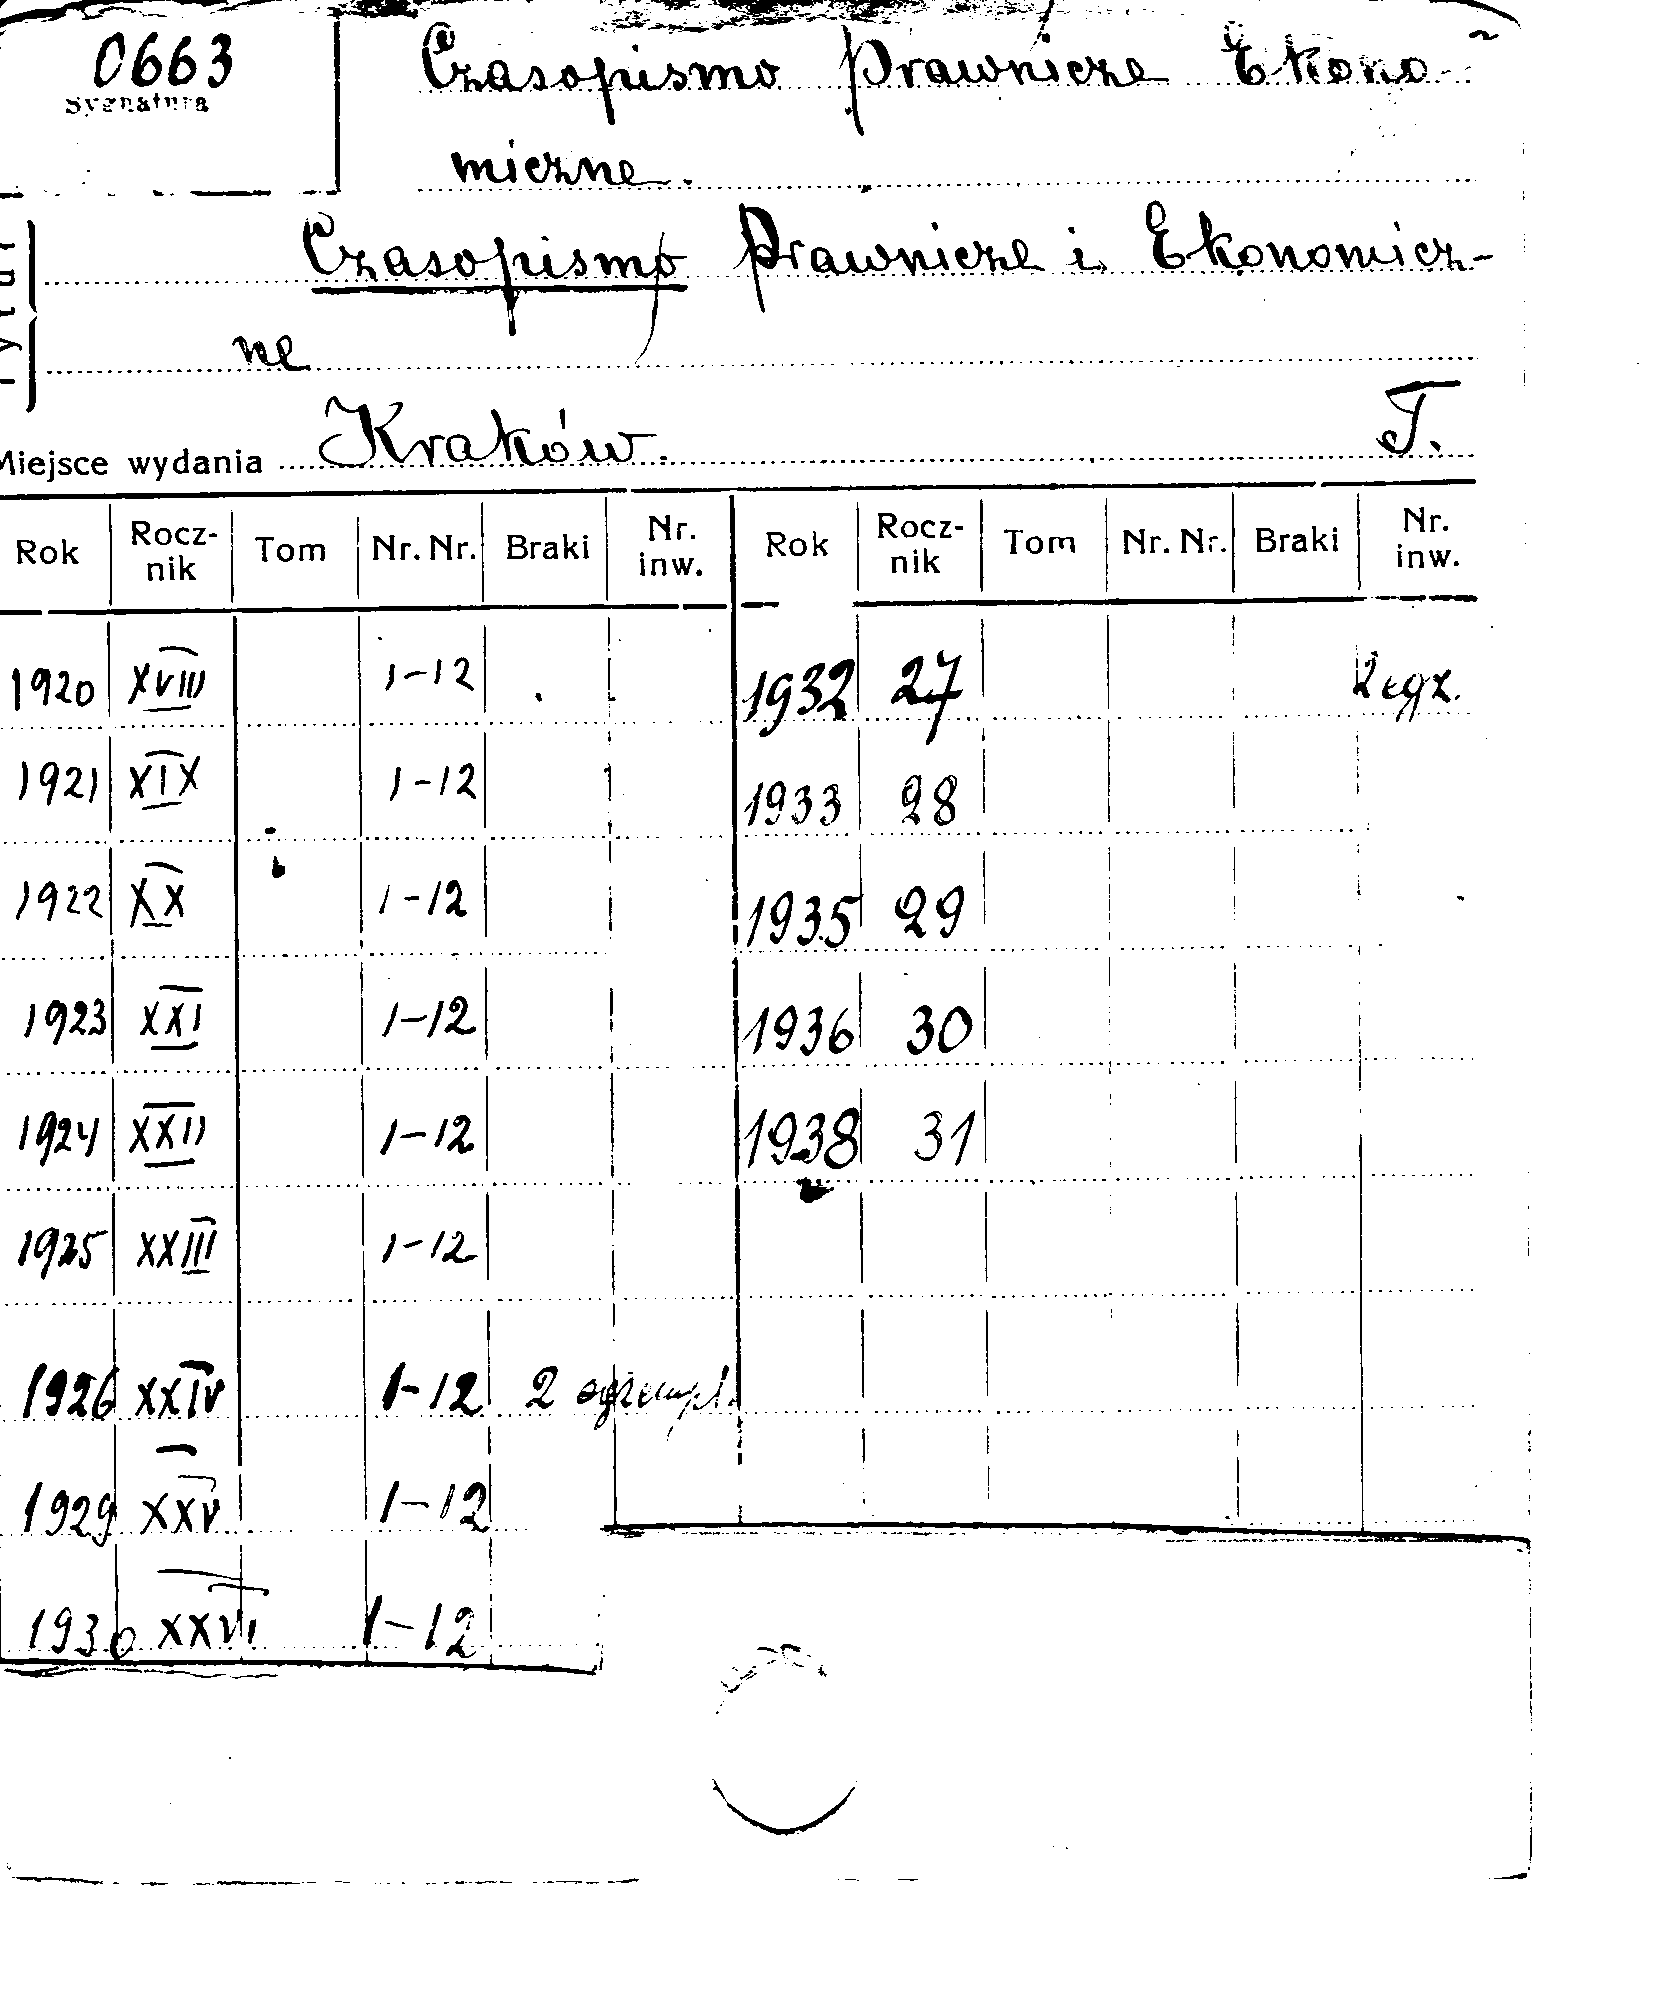 0663
Sygnatura
Czasopismo Prawnicze Ekono-
miczne.
Tytuł
Czasopismo Prawnicze i Ekonomicz-
ne
Miejsce wydania Kraków. T.
Rok Rocz-nik Tom Nr. Nr. Braki Nr. inw. Rok Rocz-nik Tom Nr. Nr. Braki Nr. inw.
1920 XVIII 1-12 1932 27 2 egz.
1921 XIX 1-12 1933 28
1922 XX 1-12 1935 29
1923 XXI 1-12 1936 30
1924 XXII 1-12 1938 31
1925 XXIII 1-12
1926 XXIV 1-12 2 egzempl.
1929 XXV 1-12
1930 XXVI 1-12